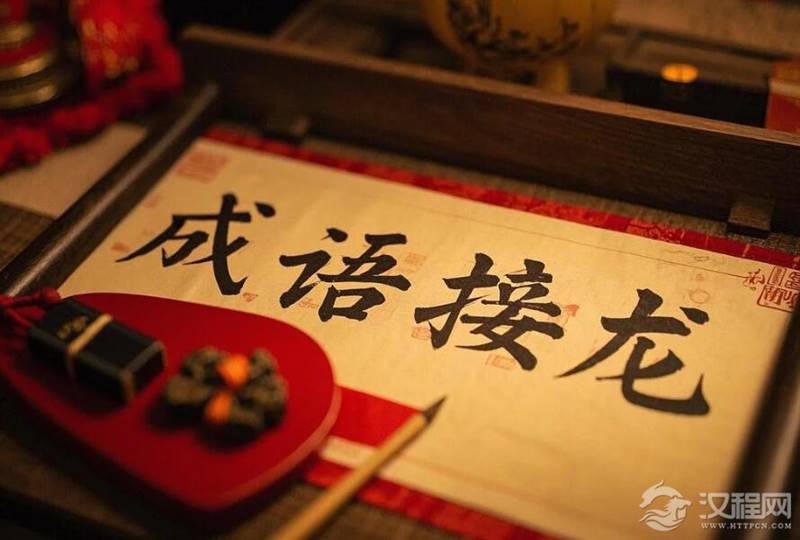 成语接龙
汉程网
WWW.HTTPCN.COM